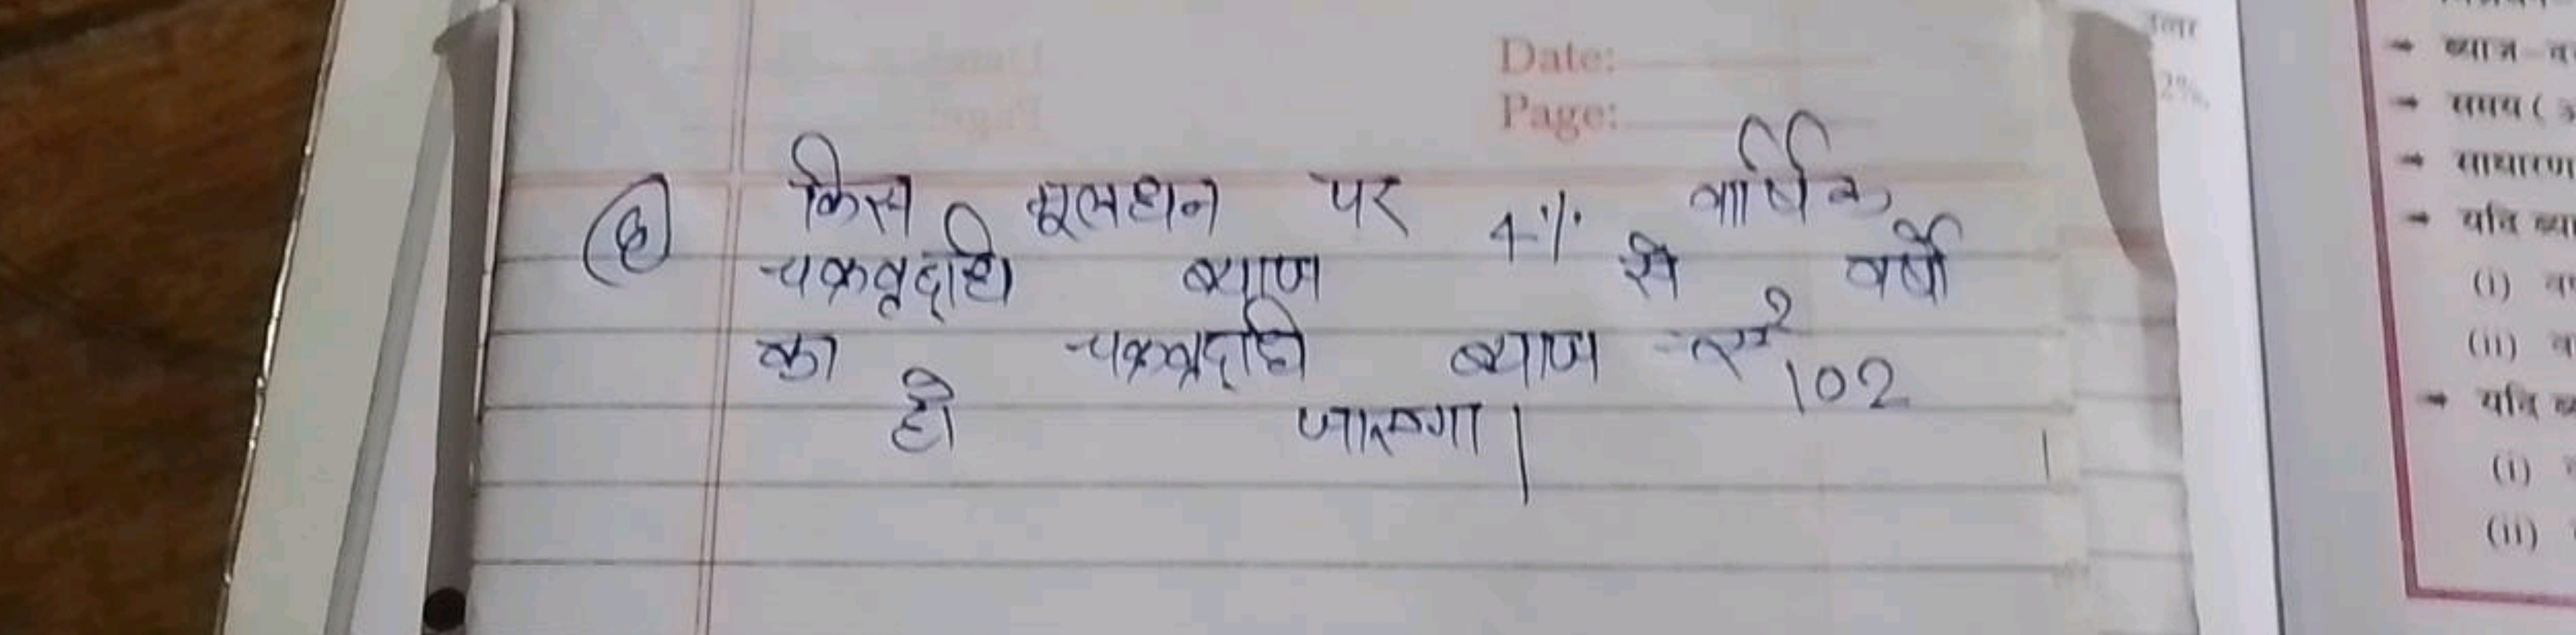 Date:
Page:
किस मूलधन पर 4% वार्षिक
चक्रवृद्धि ब्याज से वर्षो
का चक्रवृद्धि ब्याज रू 102
हो जाएगा।
2%,
→ ब्याज
→ समय (
→ साधारण
→ यदि
(i)
(ii)
→ यदि
(i)
(ii)